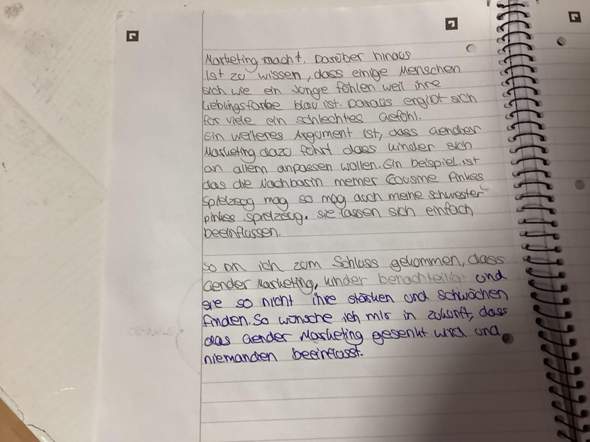 Marketing macht. Darüber hinaus
ist zu wissen, dass einige Menschen
sich wie ein Junge fühlen weil ihre
Lieblingsfarbe blau ist. Daraus ergibt sich
für viele ein schlechtes Gefühl.
Ein weiteres Argument ist, dass Gender
Marketing dazu führt dass kinder sich
an allem anpassen wollen. Ein beispiel ist
das die Nachbarin meiner Cousine Pinkes
Spielzeug mag so mag auch meine schwester
pinkes spielzeug. sie lassen sich einfach
beeinflussen.
So bin ich zum Schluss gekommen, dass
Gender Marketing, kinder benachteiligt und
sie so nicht ihre stärken und schwächen
finden. So wünsche ich mir in zukunft, dass
das Gender Marketing gesenkt wird und
niemanden beeinflusst.